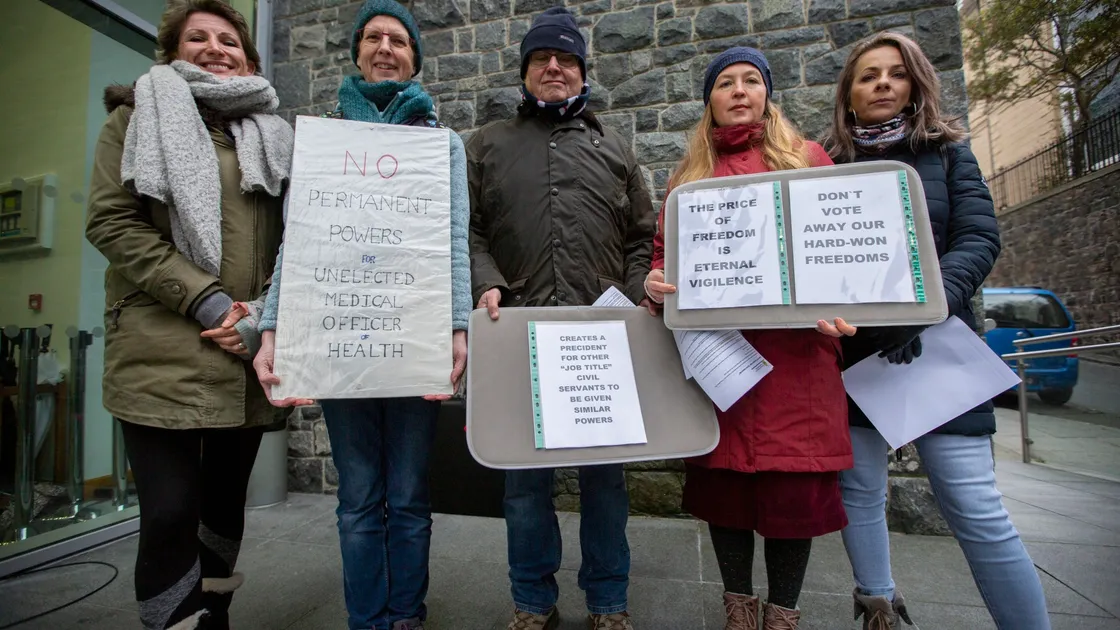 NO
PERMANENT
POWERS
FOR
UNELECTED
MEDICAL
OFFICER
OF
HEALTH
CREATES A
PRECIDENT
FOR OTHER
"JOB TITLE"
CIVIL
SERVANTS TO
BE GIVEN
SIMILAR
POWERS
THE PRICE
OF
FREEDOM
IS
ETERNAL
VIGILENCE
DON`T
VOTE
AWAY OUR
HARD-WON
FREEDOMS